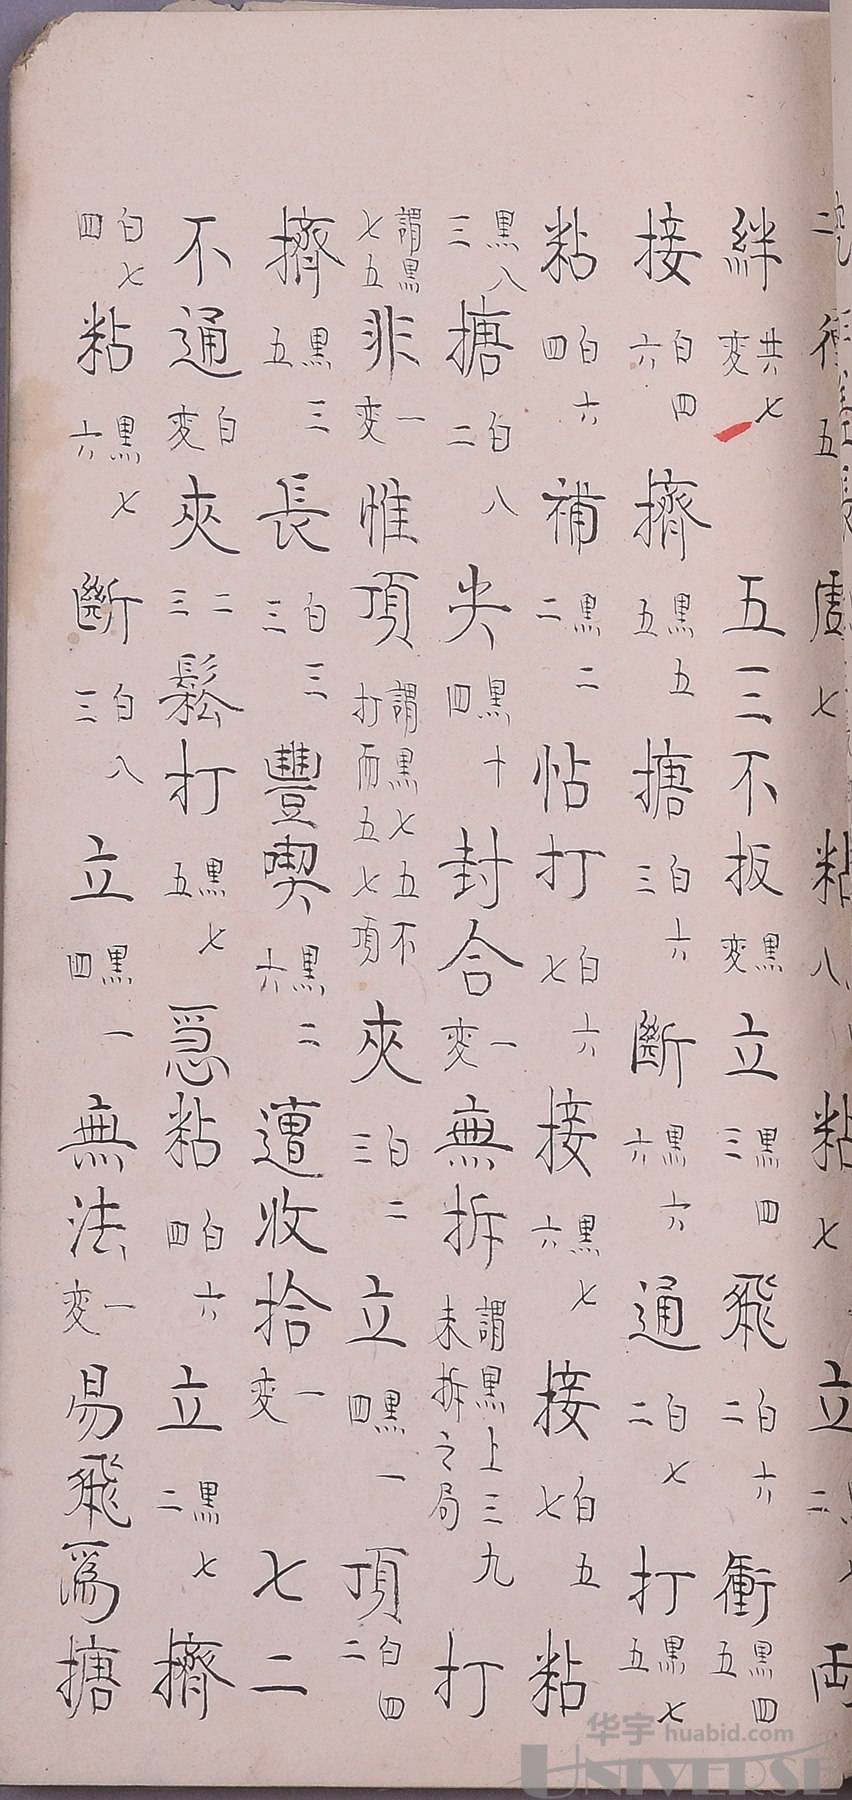 二 衝五 虛七 粘八 粘七 立二 両
絆共七变 五三不扳黒变 立黒四三 飛白六二 衝黒四五
接白四六 擠黒五五 搪白六三 斷黒六六 通白七二 打黒七五
粘白六四 補黒二二 怗打白六七 接黒七六 接白五七 粘
黒八三 搪白八二 尖黒十四 封合一变 無拆謂黒上三九未拆之局 打
謂黒七五 非一变 惟項謂黒七五不打而五七項 夾白二三 立黒一四 頂白四二
擠黒三五 長白三三 豐喫黒二六 遭收拾一变 七二
不通白变 夾二三 鬆打黒七五 惡粘白六四 立黒七二 擠
白七四 粘黒七六 斷白八三 立黒一四 無法一变 易飛爲搪
华宇 huabid.com
UNIVERSE